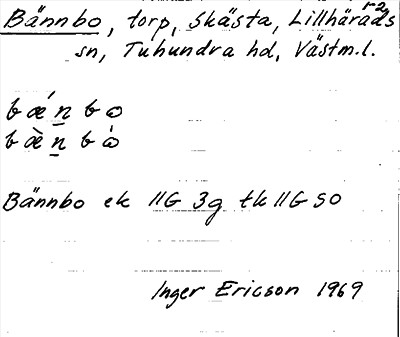 Bännbo, torp, Skästa, Lillhärads r2
sn, Tuhundra hd, Västm.l.
b ǽ n̲ b ɷ
b æ̀ n̲ b ɷ̀
Bännbo ek 11G 3g tk 11G SO
Inger Ericson 1969